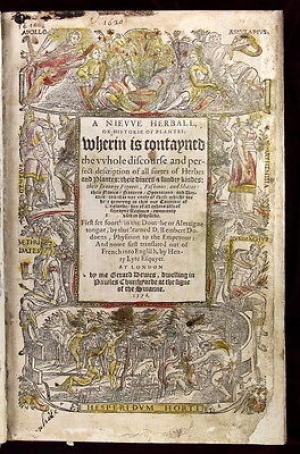 1620
APOLLO
ÆSCULAPIUS
A NIEVVE HERBALL,
OR HISTORIE OF PLANTES:
wherin is contayned
the vvhole discourse and per-
fect description of all sortes of Herbes
and Plantes: their divers & sundry kindes:
their straunge Figures, Fashions, and Shapes:
their Names, Natures, Operations, and Ver-
tues: and that not onely of those whiche are
here growyng in this our Countrie of
Englande, but of all others also of
forrayne Realmes, commonly
used in Physicke.
First set foorth in the Doutche or Almaigne
tongue, by that learned D. Rembert Do-
doens, Physition to the Emperour:
And nowe first translated out of
French into English, by Hen-
ry Lyte Esquyer.
AT LONDON
by me Gerard Dewes, dwelling in
Pawles Churchyarde at the signe
of the Swanne.
1578.
GEN
TIUS
METHRI
DATES
HESPERIDUM HORTI